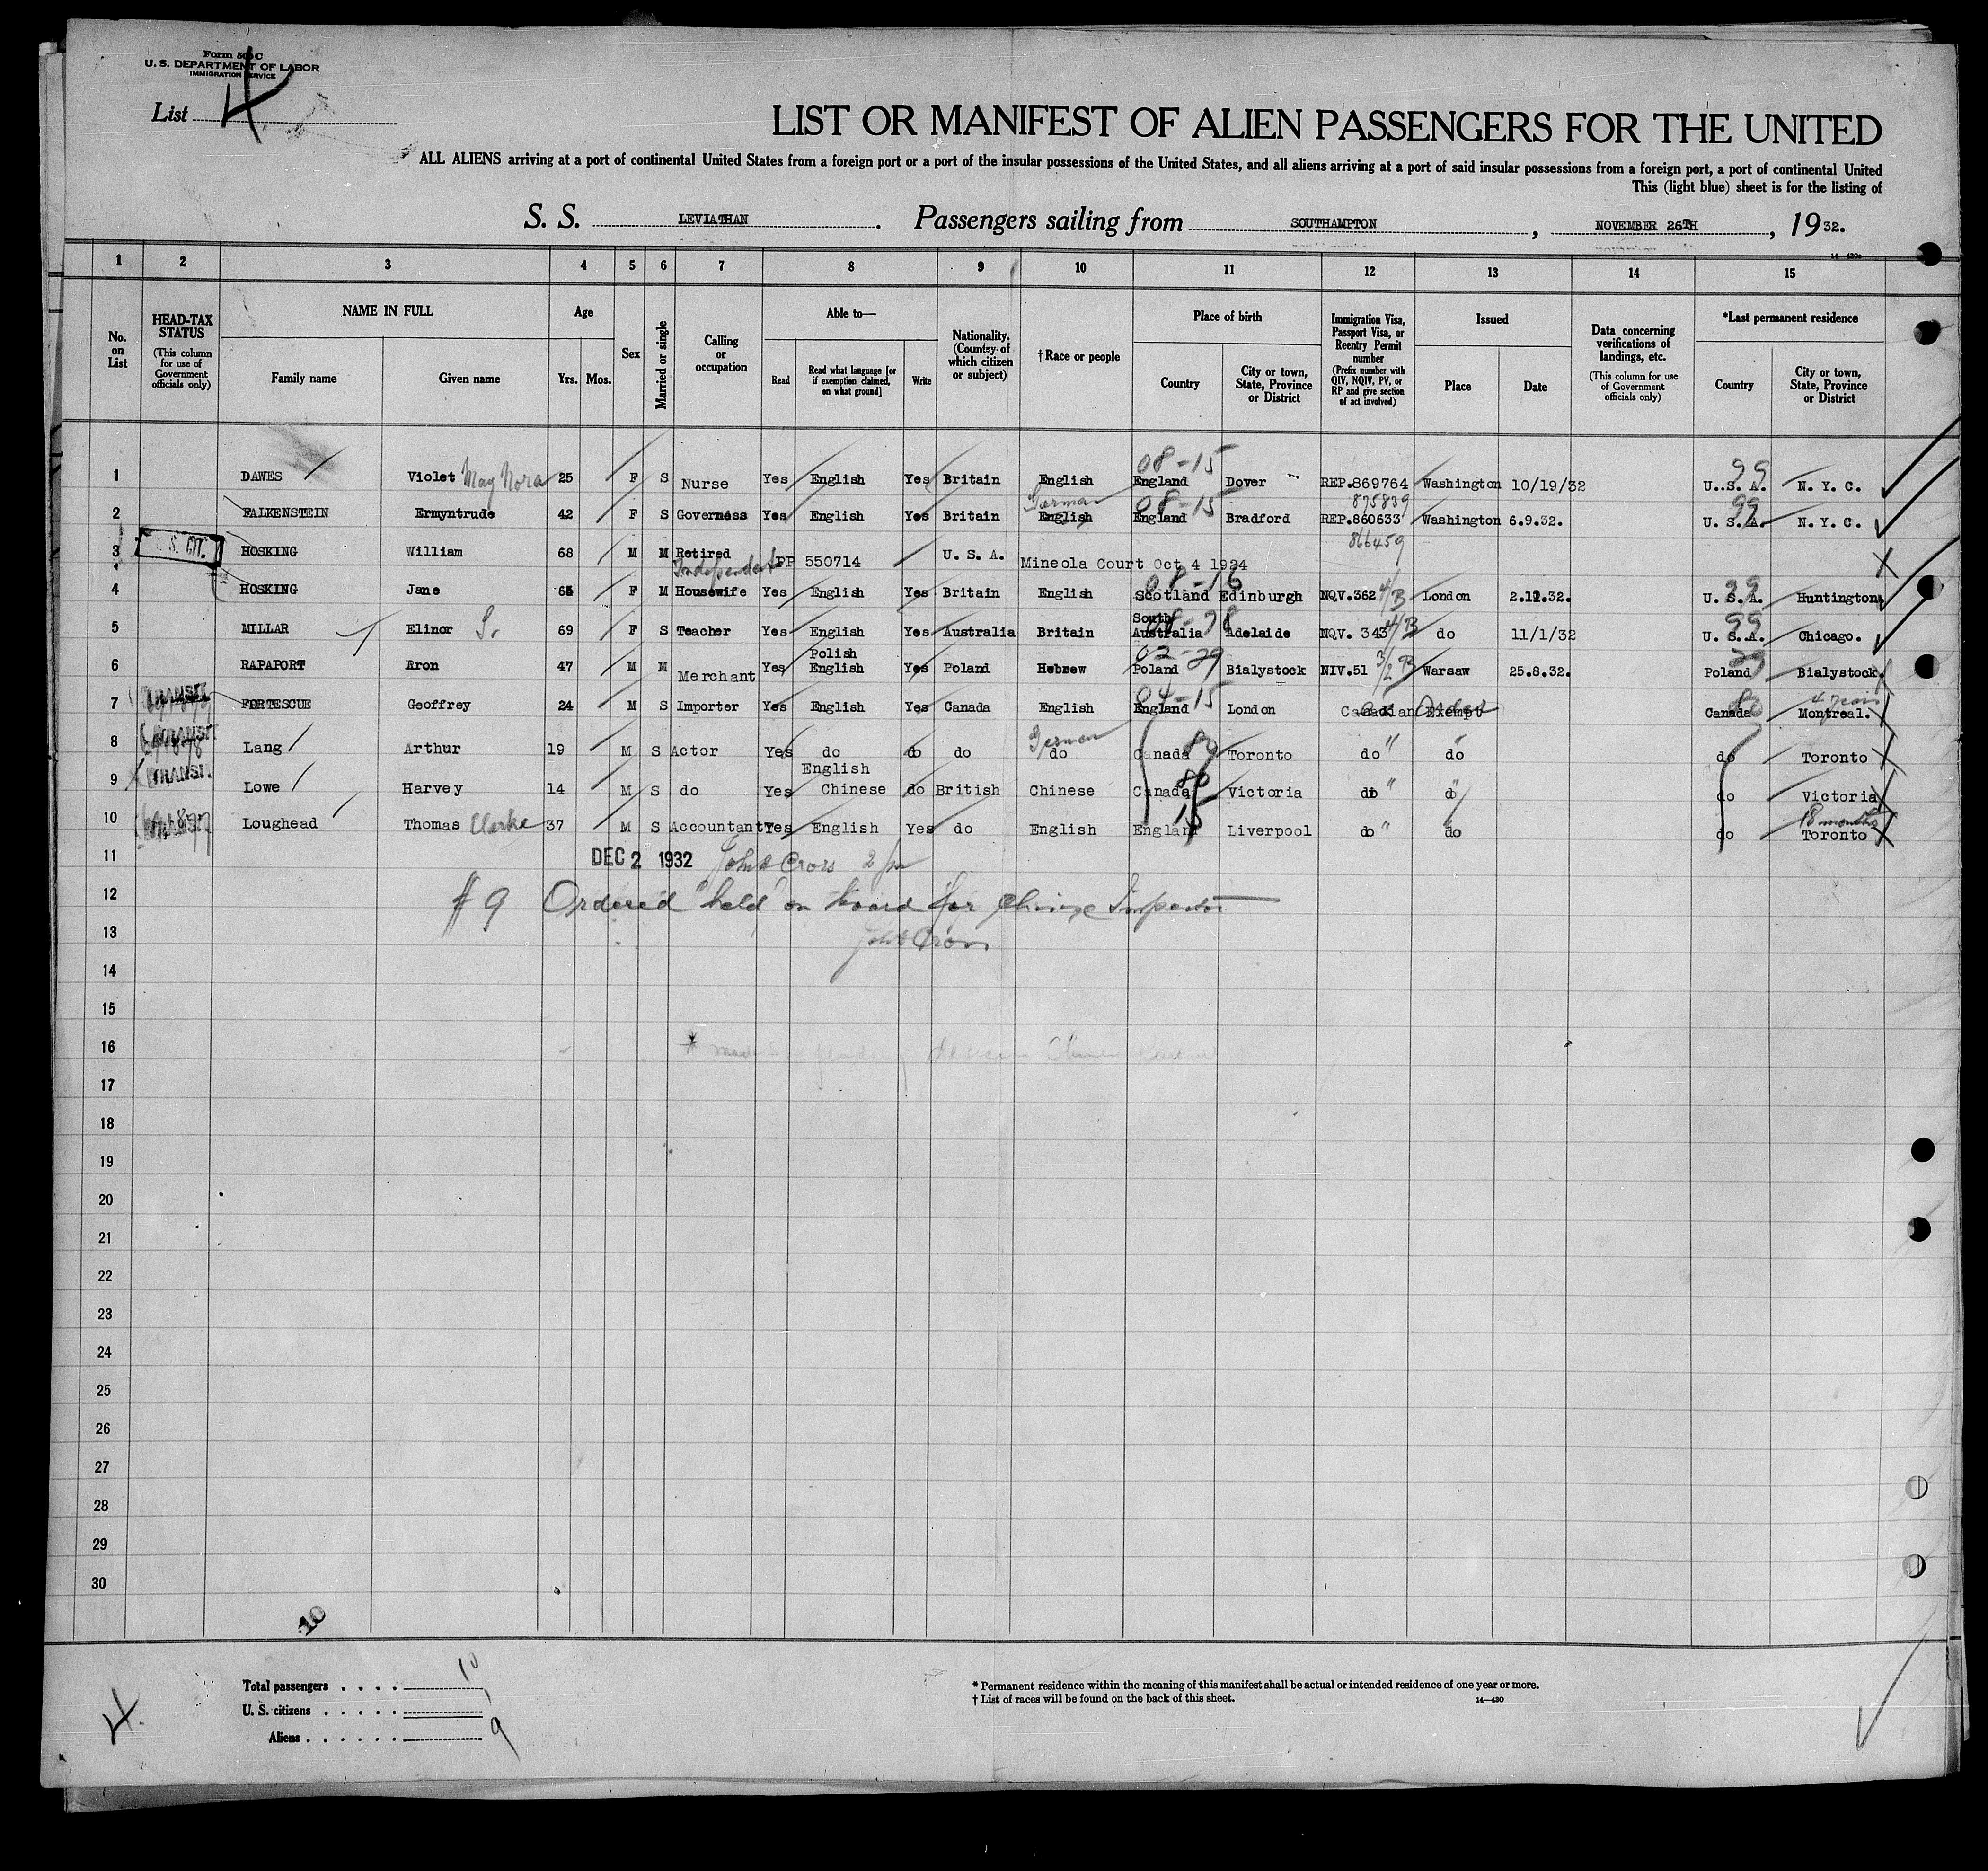 Form 500 C
U. S. DEPARTMENT OF LABOR
IMMIGRATION SERVICE
List 4
LIST OR MANIFEST OF ALIEN PASSENGERS FOR THE UNITED
ALL ALIENS arriving at a port of continental United States from a foreign port or a port of the insular possessions of the United States, and all aliens arriving at a port of said insular possessions from a foreign port, a port of continental United
This (light blue) sheet is for the listing of
S. S. LEVIATHAN. Passengers sailing from SOUTHAMPTON, NOVEMBER 26TH, 1932.
14—430
1 2 3 4 5 6 7 8 9 10 11 12 13 14 15
No. on List
HEAD-TAX STATUS
(This column for use of Government officials only)
NAME IN FULL
Family name
Given name
Age
Yrs. Mos.
Sex
Married or single
Calling or occupation
Able to—
Read
Read what language [or if exemption claimed, on what ground]
Write
Nationality. (Country of which citizen or subject)
†Race or people
Place of birth
Country
City or town, State, Province or District
Immigration Visa, Passport Visa, or Reentry Permit number
(Prefix number with QIV, NQIV, PV, or RP and give section of act involved)
Issued
Place
Date
Data concerning verifications of landings, etc.
(This column for use of Government officials only)
*Last permanent residence
Country
City or town, State, Province or District
08-15 99
1 DAWES Violet May Nora 25 F S Nurse Yes English Yes Britain English England Dover REP.869764 Washington 10/19/32 U.S. A. N. Y. C.
German 08-15 875839 99
2 FALKENSTEIN Ermyntrude 42 F S Governess Yes English Yes Britain English England Bradford REP.860633 Washington 6.9.32. U. S. A. N. Y. C.
866459
3 S. CIT. HOSKING William 68 M M Retired PP 550714 U. S. A. Mineola Court Oct 4 1924
Independent 08-16 99
4 HOSKING Jane 65 F M Housewife Yes English Yes Britain English Scotland Edinburgh NQV.362 4/B London 2.11.32. U. S. A. Huntington
South 99
5 MILLAR Elinor S. 69 F S Teacher Yes English Yes Australia Britain Australia Adelaide NQV. 343 4/B do 11/1/32 U. S. A. Chicago.
Polish 02-29 29
6 RAPAPORT Aron 47 M M Merchant Yes English Yes Poland Hebrew Poland Bialystock NIV.51 3/2 B Warsaw 25.8.32. Poland Bialystock
TRANSIT 04-15 80
7 FORTESCUE Geoffrey 24 M S Importer Yes English Yes Canada English England London Canadian Exempt Canada Montreal.
TRANSIT German
8 Lang Arthur 19 M S Actor Yes do do do do Canada Toronto do " do do Toronto
TRANSIT. English
9 Lowe Harvey 14 M S do Yes Chinese do British Chinese Canada Victoria do " do Victoria
18 months
10 Loughead Thomas Clarke 37 M S Accountant Yes English Yes do English England Liverpool do " do do Toronto
11 DEC 2 1932
12 # 9 Ordered "held" on board for Chinese Inspector
13
14
15
16
17
18
19
20
21
22
23
24
25
26
27
28
29
30
10
Total passengers 10
U. S. citizens 1
Aliens 9
4.
* Permanent residence within the meaning of this manifest shall be actual or intended residence of one year or more.
† List of races will be found on the back of this sheet.
14—430